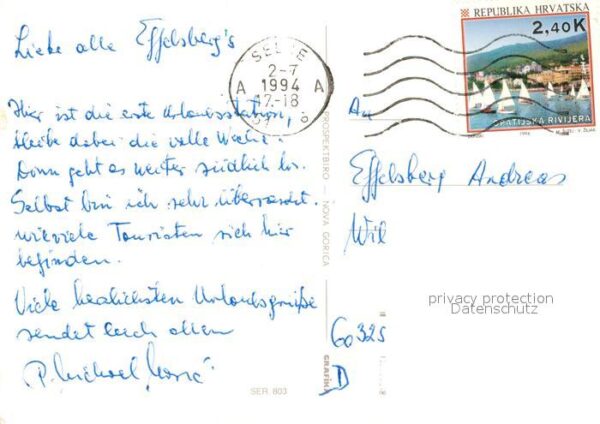 Liebe alle Effelsberg's
Hier ist die erste Urlaubsstation,
bleibe dabei die volle Woche.
Dann geht es weiter südlich
Selbst bin ich sehr überrascht.
wieviele Touristen sich hier
befinden.
Viele herzlichsten Urlaubsgrüße
sendet Euch allen
P. Michael
SER. 803
PROSPEKTBIRO — NOVA GORICA
GRAFIKA
SELCE
2-7
1994
A A
17-18
REPUBLIKA HRVATSKA
2,40K
OPATIJSKA RIVIJERA
1994
An
Effelsberg Andreas
Wil
privacy protection
Datenschutz
60325
D